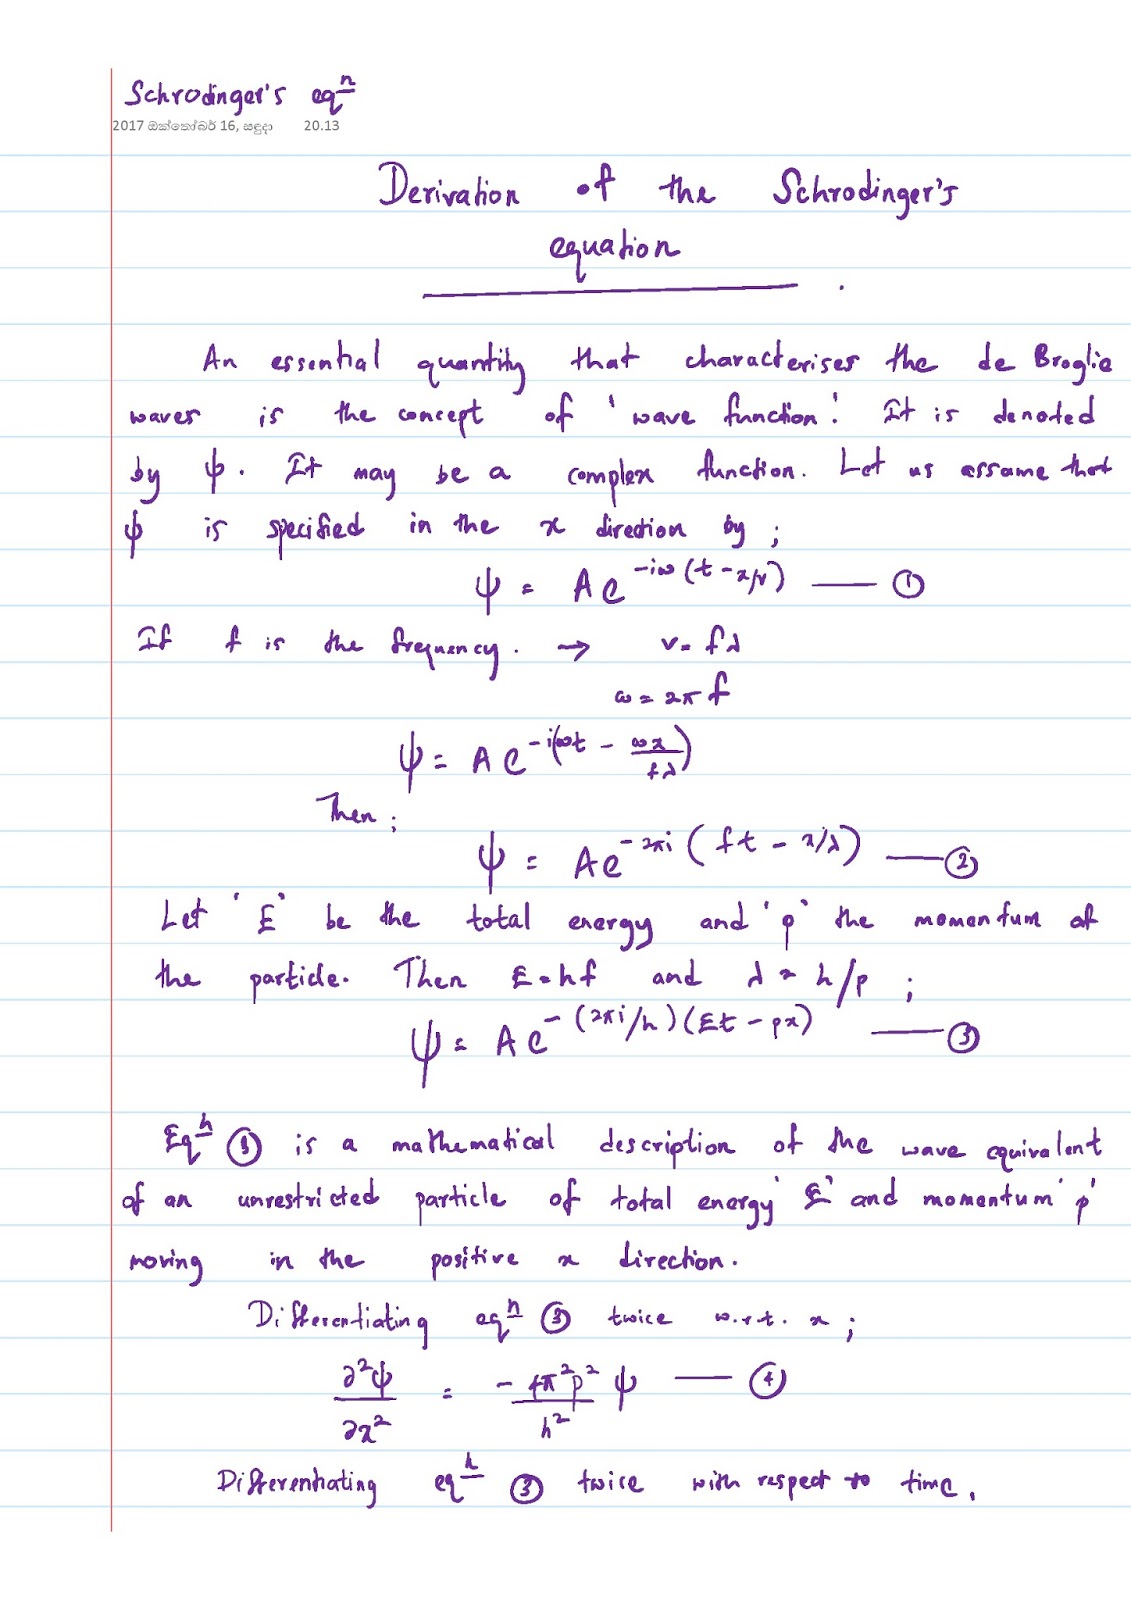 Schrodinger's eqn
2017 ඔක්තෝබර් 16, සඳුදා 20.13
Derivation of the Schrodinger's
equation
An essential quantity that characterises the de Broglie
waves is the concept of 'wave function'. It is denoted
by ψ. It may be a complex function. Let us assume that
ψ is specified in the x direction by ;
ψ = A e^{-iω(t - x/v)} —— ①
If f is the frequency. → v = fλ
ω = 2π f
ψ = A e^{-i(ωt - ωx/fλ)}
Then ;
ψ = A e^{-2πi (ft - x/λ)} —— ②
Let 'E' be the total energy and 'p' the momentum of
the particle. Then E = hf and λ = h/p ;
ψ = A e^{-(2πi/h)(Et - px)} —— ③
Eqn ③ is a mathematical description of the wave equivalent
of an unrestricted particle of total energy 'E' and momentum 'p'
moving in the positive x direction.
Differentiating eqn ③ twice w.r.t. x ;
∂²ψ/∂x² = -4π²p²/h² ψ —— ④
Differentiating eqn ③ twice with respect to time,